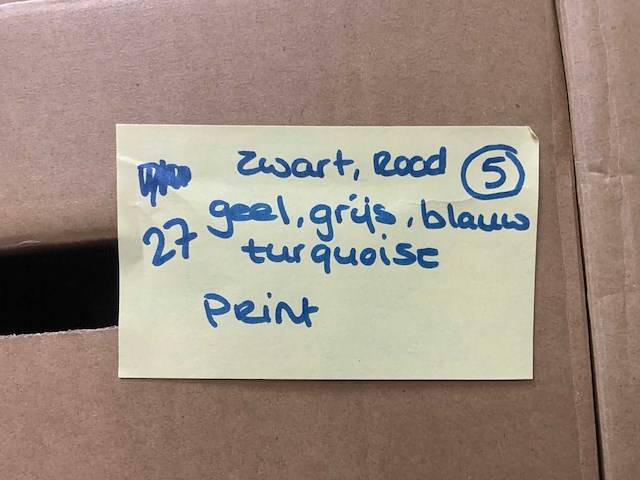 zwart, Rood 5
geel, grijs, blauw
27 turquoise
Print